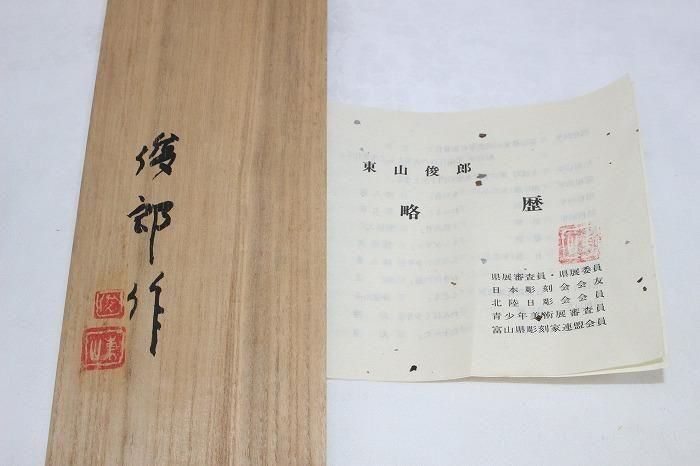 俊郎作
東山俊郎
略歴
県展審査員・県展委員
日本彫刻会会友
北陸日彫会会員
青少年美術展審査員
富山県彫刻家連盟会員